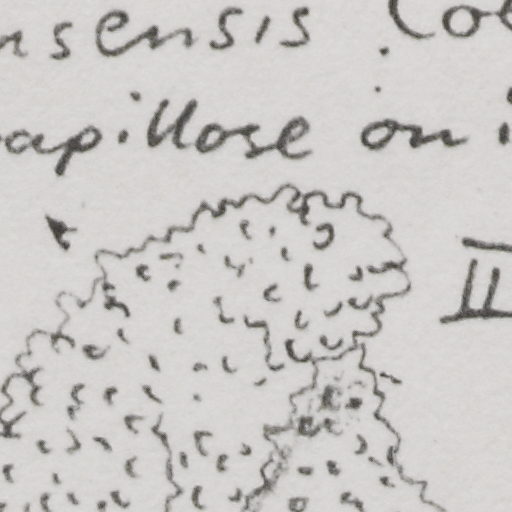 nsensis Co
papillose on i
II